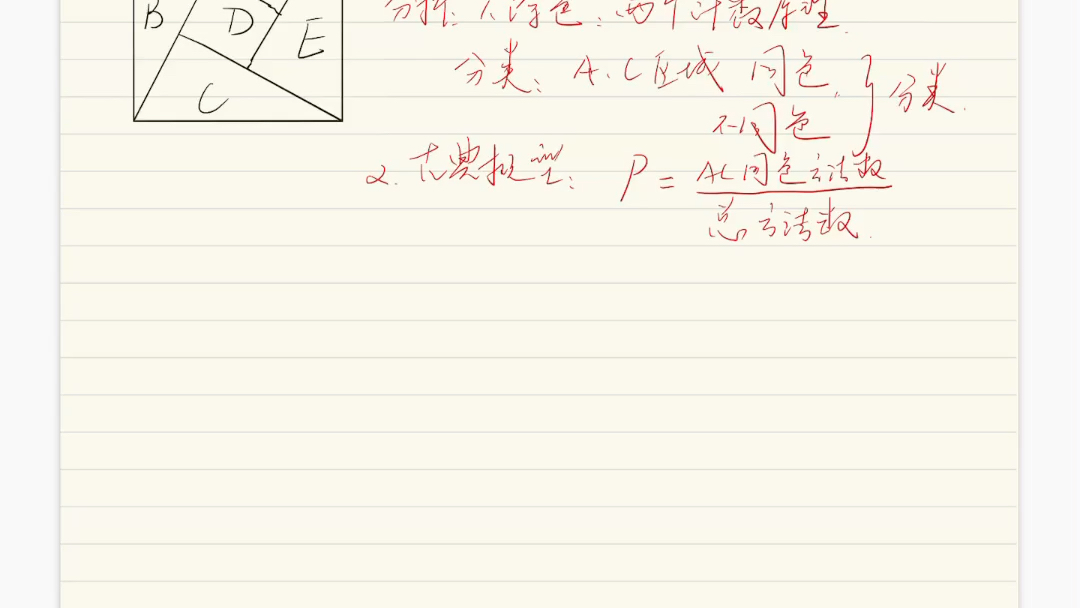 B D E
C
分析: 1.涂色: 两个计数原理.
分类: A.C区域 同色,
不同色
} 分类.
2. 古典概型: P = AC同色方法数
总方法数.